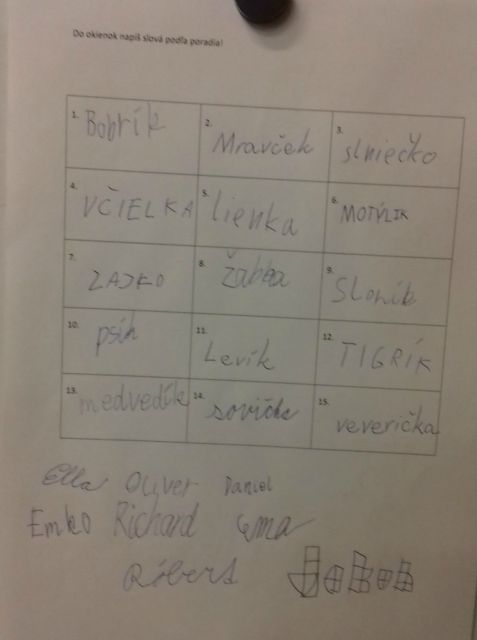 Do okienok napíš slová podľa poradia!
1. Bobrík 2. Mravček 3. slniečko
4. VČIELKA 5. lienka 6. MOTÝLIK
7. ZAJKO 8. Žabka 9. Sloník
10. psík 11. Levík 12. TIGRÍK
13. medvedík 14. sovička 15. veverička
Ella Oliver Daniel
Emko Richard ema
Róbert Jakub